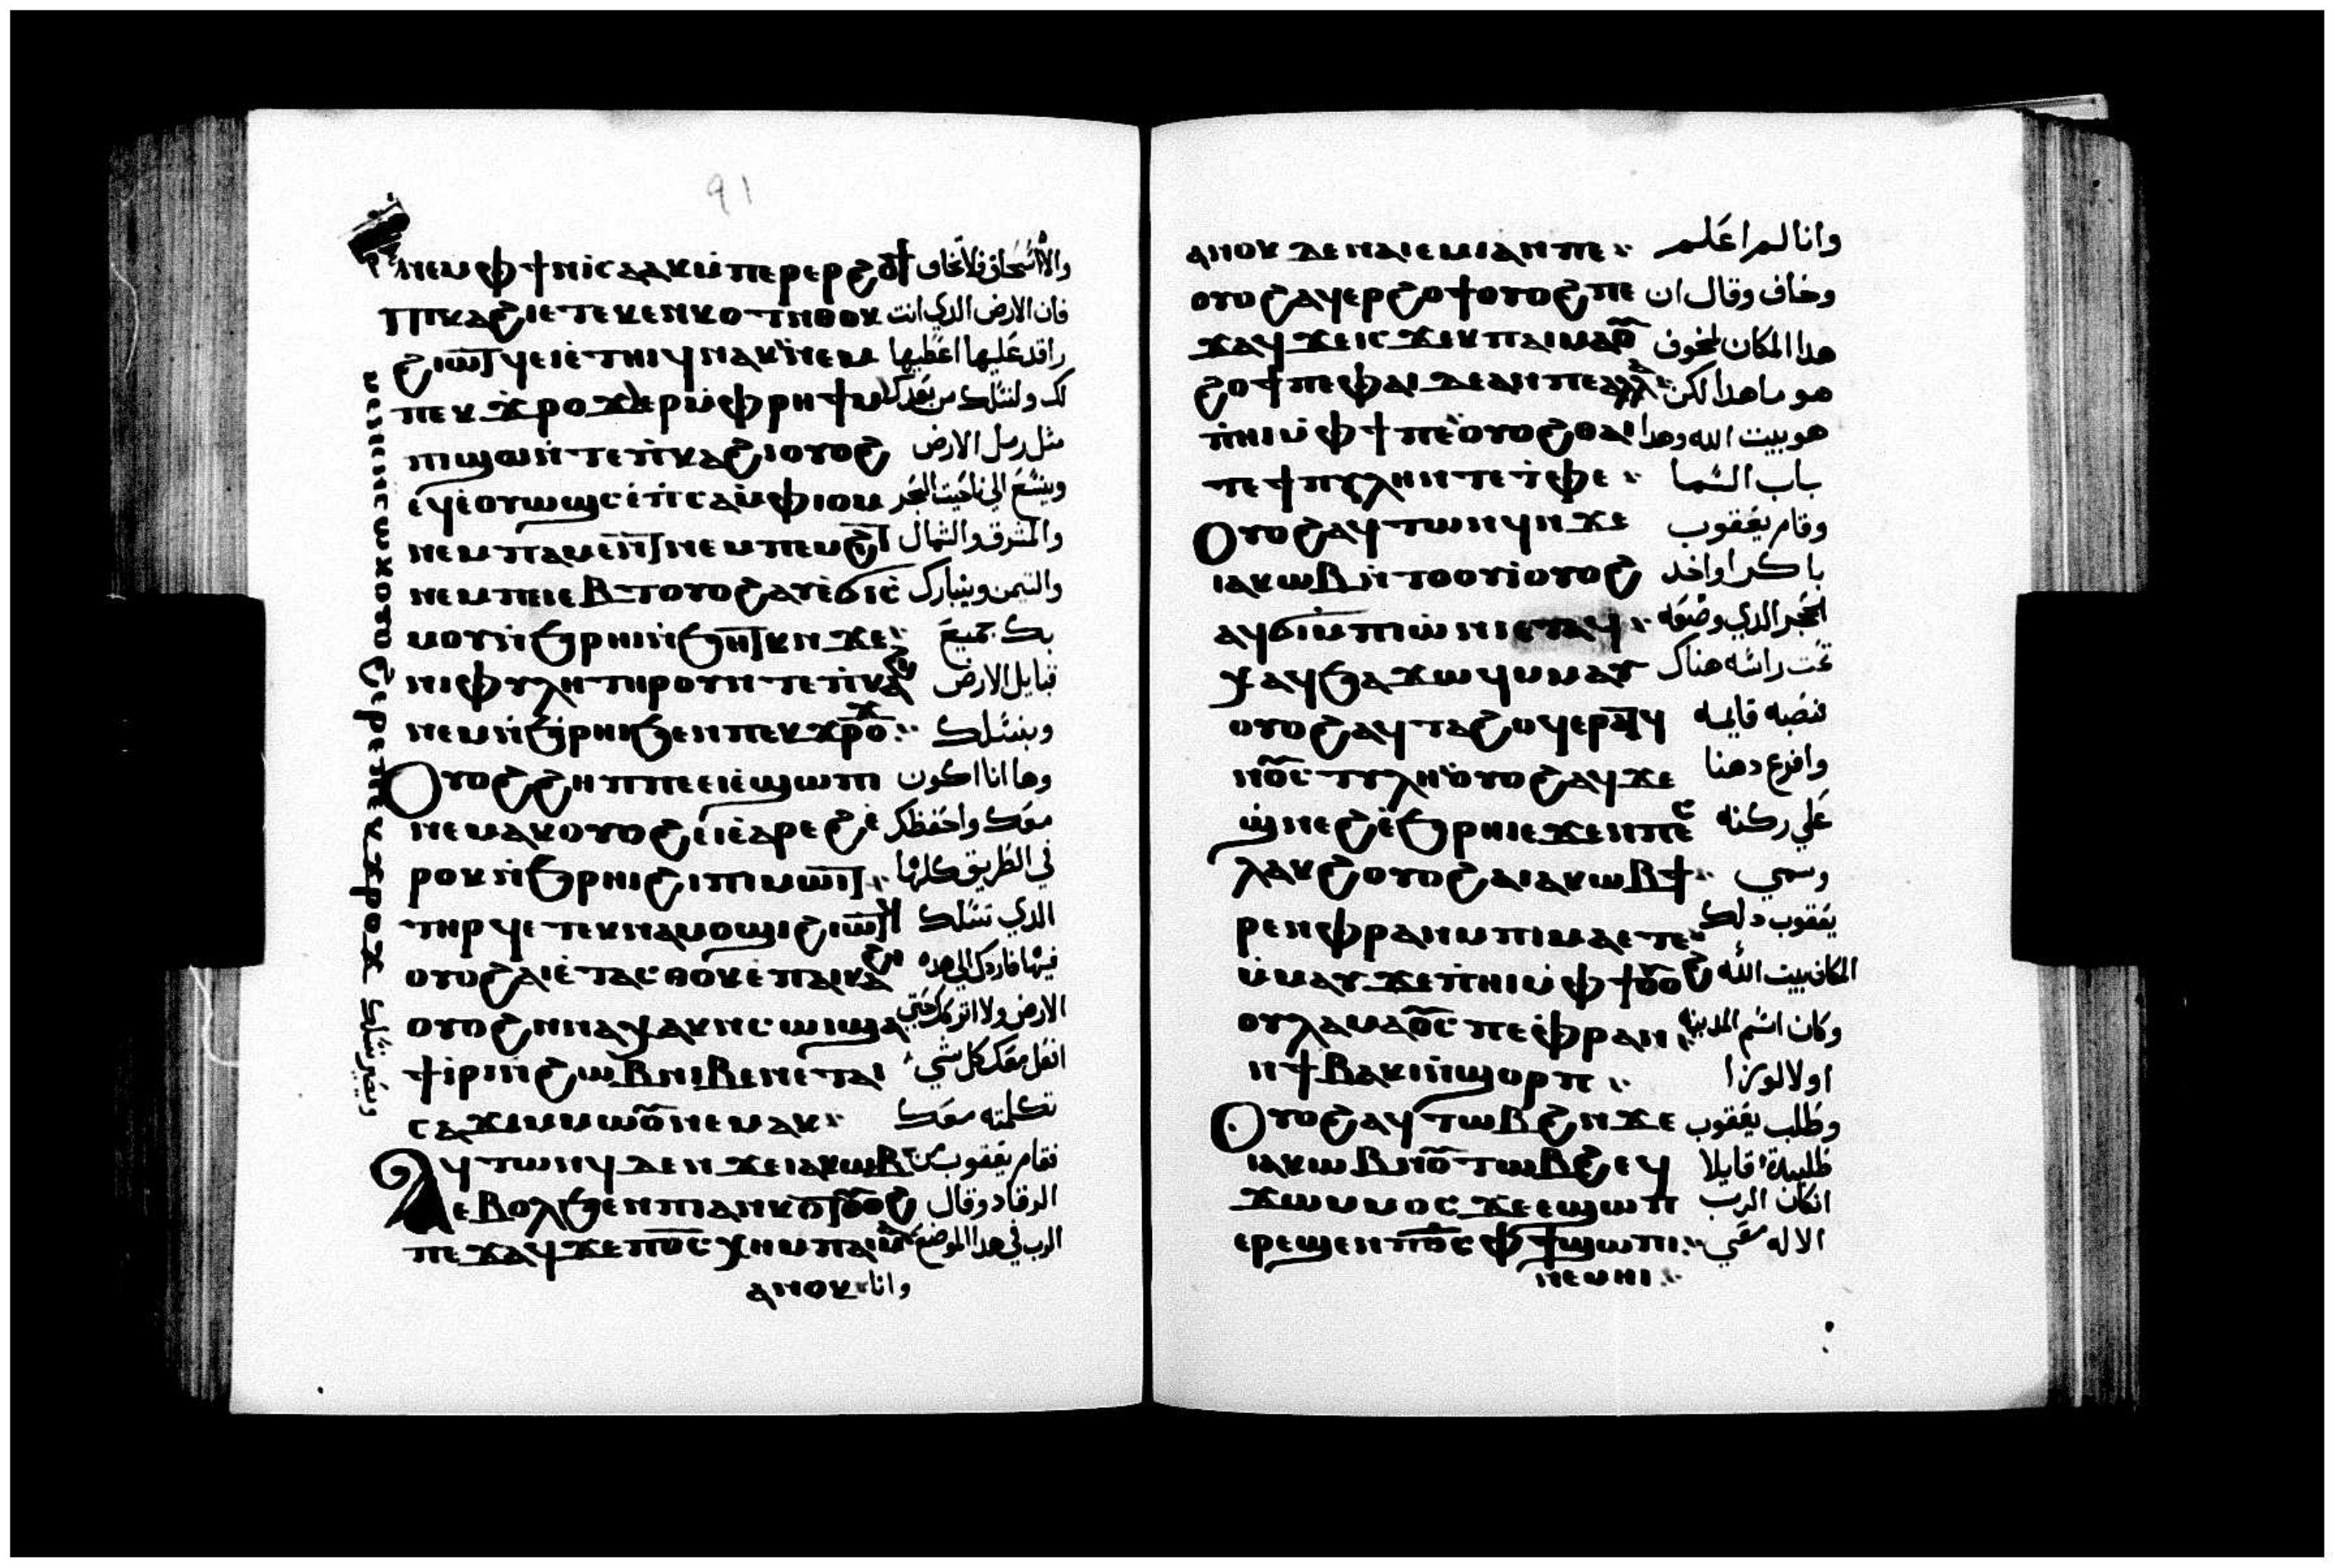 91
ⲛⲉⲙ ⲫϯ ⲛⲓⲥⲁⲁⲕ ⲙ̇ⲡⲉⲣⲉⲣϩⲟϯ والاه اسحاق فلا تخاف
ⲡⲓⲕⲁϩⲓ ⲉⲧⲉⲕⲉⲛⲕⲟⲧ ⲛⲑⲟⲕ فان الارض الدي انت
ϩⲓⲱⲧϥ ⲉⲓⲉ̇ⲧⲏⲓϥ ⲛⲁⲕ ⲛⲉⲙ راقد عليها اعطيها
ⲡⲉⲕϫⲣⲟϫ ⲉⲣⲙ̇ⲫⲣⲏϯ ⲙ لك ولنسلك من بعدك
ⲡⲓϣⲱ ⲛ̇ⲧⲉ ⲡ̇ⲕⲁϩⲓ ⲟⲩⲟϩ مثل رمل الارض
ⲉϥⲉ̇ⲟⲩⲱϣⲥ ⲉ̇ⲡ̇ⲥⲁ ⲙ̇ⲫⲓⲟⲙ ويتسع الي ناحيت البحر
ⲛⲉⲙ ⲡⲁⲙⲉⲛⲧ ⲛⲉⲙ ⲡⲉⲙϩⲓⲧ والمشرق والشمال
ⲛⲉⲙ ⲡⲓⲉⲃⲧ ⲟⲩⲟϩ ⲁⲩⲉ̇ϭⲓⲥ̇ والتيمن ويتبارك
ⲙⲟⲩ ⲛ̇ϧⲣⲏⲓ ⲛ̇ϧⲏⲧⲕ ⲛϫⲉ بك جميع
ⲛⲓⲫⲩⲗⲏ ⲧⲏⲣⲟⲩ ⲛⲧⲉ ⲡ̇ⲕⲁϩⲓ قبايل الارض
ⲛⲉⲙ ⲛ̇ϧⲣⲏⲓ ϧⲉⲛ ⲡⲉⲕϫⲣⲟϫ وبنسلك
ⲟⲩⲟϩ ϩⲏⲡⲡⲉ ⲉⲓⲉ̇ϣⲱⲡⲓ وها انا اكون
ⲛⲉⲙⲁⲕ ⲟⲩⲟϩ ⲉⲓⲉ̇ⲁⲣⲉϩ ⲉ̇ معك واحفظك
ⲣⲟⲕ ⲛ̇ϧⲣⲏⲓ ϩⲓ ⲡⲓⲙⲱⲓⲧ في الطريق كلها
ⲧⲏⲣϥ ⲉⲧⲉⲕⲛⲁⲙⲟϣⲓ ϩⲓⲱⲧϥ الدي تسلك
ⲟⲩⲟϩ ⲁⲓⲉ̇ⲧⲁⲥⲑⲟⲕ ⲉ̇ⲡⲁⲓⲕⲁϩⲓ فيها فاردك الي هده
ⲟⲩⲟϩ ⲛⲛⲁⲭⲁⲕ ⲛⲥⲱⲓ ϣⲁ الارض ولا اتركك حتي
ϯⲓⲣⲓ ⲛ̇ϩⲱⲃ ⲛⲓⲃⲉⲛ ⲉⲧⲁⲓ افعل معك كل شي
ⲥⲁϫⲓ ⲙⲙⲱⲟⲩ ⲛⲉⲙⲁⲕ تكلمته معك
ⲁϥⲧⲱⲛϥ ⲇⲉ ⲛϫⲉ ⲓⲁⲕⲱⲃ فقام يعقوب من
ⲉⲃⲟⲗϧⲉⲛ ⲡⲓⲁⲛⲕⲟⲧ ⲟⲩⲟϩ الرقاد وقال
ⲡⲉϫⲁϥ ϫⲉ ⲡⲟ̅ⲥ̅ ⲭⲏ ⲙⲡⲁⲓⲙⲁ الرب في هدا الموضع
ⲁⲛⲟⲕ وانا
ⲟⲩⲟϩ ⲉⲣⲉ ⲡⲉⲕϫⲣⲟϫ ويصير نسلك
ⲁⲛⲟⲕ ⲇⲉ ⲛⲁⲓⲉⲙⲓ ⲁⲛ ⲡⲉ وانا لم اعلم
ⲟⲩⲟϩ ⲁϥⲉⲣϩⲟϯ ⲟⲩⲟϩ ⲡⲉ وخاف وقال ان
ϫⲁϥ ϫⲉ ⲓⲥϫⲉⲕ ⲡⲁⲓⲙⲁ ⲟⲩ هدا المكان لمخوف
ϩⲟϯ ⲡⲉ ⲫⲁⲓ ⲇⲉ ⲁⲛ ⲡⲉ ⲁⲗⲗⲁ هو ما هدا لكن
ⲡ̇ⲏⲓ ⲙ̇ⲫϯ ⲡⲉ ⲟⲩⲟϩ ⲑⲁⲓ هو بيت الله وهدا
ⲧⲉ ϯⲡⲩⲗⲏ ⲛⲧⲉ ⲧ̇ⲫⲉ باب السما
ⲟⲩⲟϩ ⲁϥⲧⲱⲛϥ ⲛϫⲉ وقام يعقوب
ⲓⲁⲕⲱⲃ ⲛ̇ⲧⲟⲟⲩⲓ̇ ⲟⲩⲟϩ باكرا واخد
ⲁϥϭⲓ ⲙ̇ⲡⲓⲱ̇ⲛⲓ ⲉⲧⲁϥ الحجر الدي وضعه
ⲭⲁϥ ϧⲁϫⲱϥ ⲙⲙⲁⲩ تحت راسه هناك
ⲟⲩⲟϩ ⲁϥⲧⲁϩⲟϥ ⲉⲣⲁⲧϥ فنصبه قايمه
ⲛⲟⲩⲥⲧⲩⲗⲏ ⲟⲩⲟϩ ⲁϥϫⲉ وافرع دهنا
ϣ̇ⲛⲉϩ ⲉ̇ϧⲣⲏⲓ ⲉϫⲉⲛ ⲡⲉϥ علي ركنه
ⲗⲁⲕϩ ⲟⲩⲟϩ ⲁ ⲓⲁⲕⲱⲃ ϯ وسمي
ⲣⲉⲛ ⲫⲣⲁⲛ ⲙⲡⲓⲙⲁ ⲉⲧⲉ يعقوب دلك
ⲙ̇ⲙⲁⲩ ϫⲉ ⲡ̇ⲏⲓ ⲙ̇ⲫϯ ⲟⲩⲟϩ المكان بيت الله
ⲟⲩⲗⲁⲙⲁⲟⲩⲥ ⲡⲉ ⲫ̇ⲣⲁⲛ وكان اسم المدينه
ⲛϯⲃⲁⲕⲓ ⲛ̇ϣⲟⲣⲡ اولا لوزا
ⲟⲩⲟϩ ⲁϥⲧⲱⲃϩ ⲛϫⲉ وطلب يعقوب
ⲓⲁⲕⲱⲃ ⲛⲟⲩⲧⲱⲃϩ ⲉϥ طلبة قايلا
ϫⲱ ⲙⲙⲟⲥ ϫⲉ ⲉϣⲱⲡ انكان الرب
ⲉⲣⲉϣⲉⲛ ⲡⲟ̅ⲥ̅ ⲫϯ ϣⲱⲡⲓ الاله معي
ⲛⲉⲙⲏⲓ